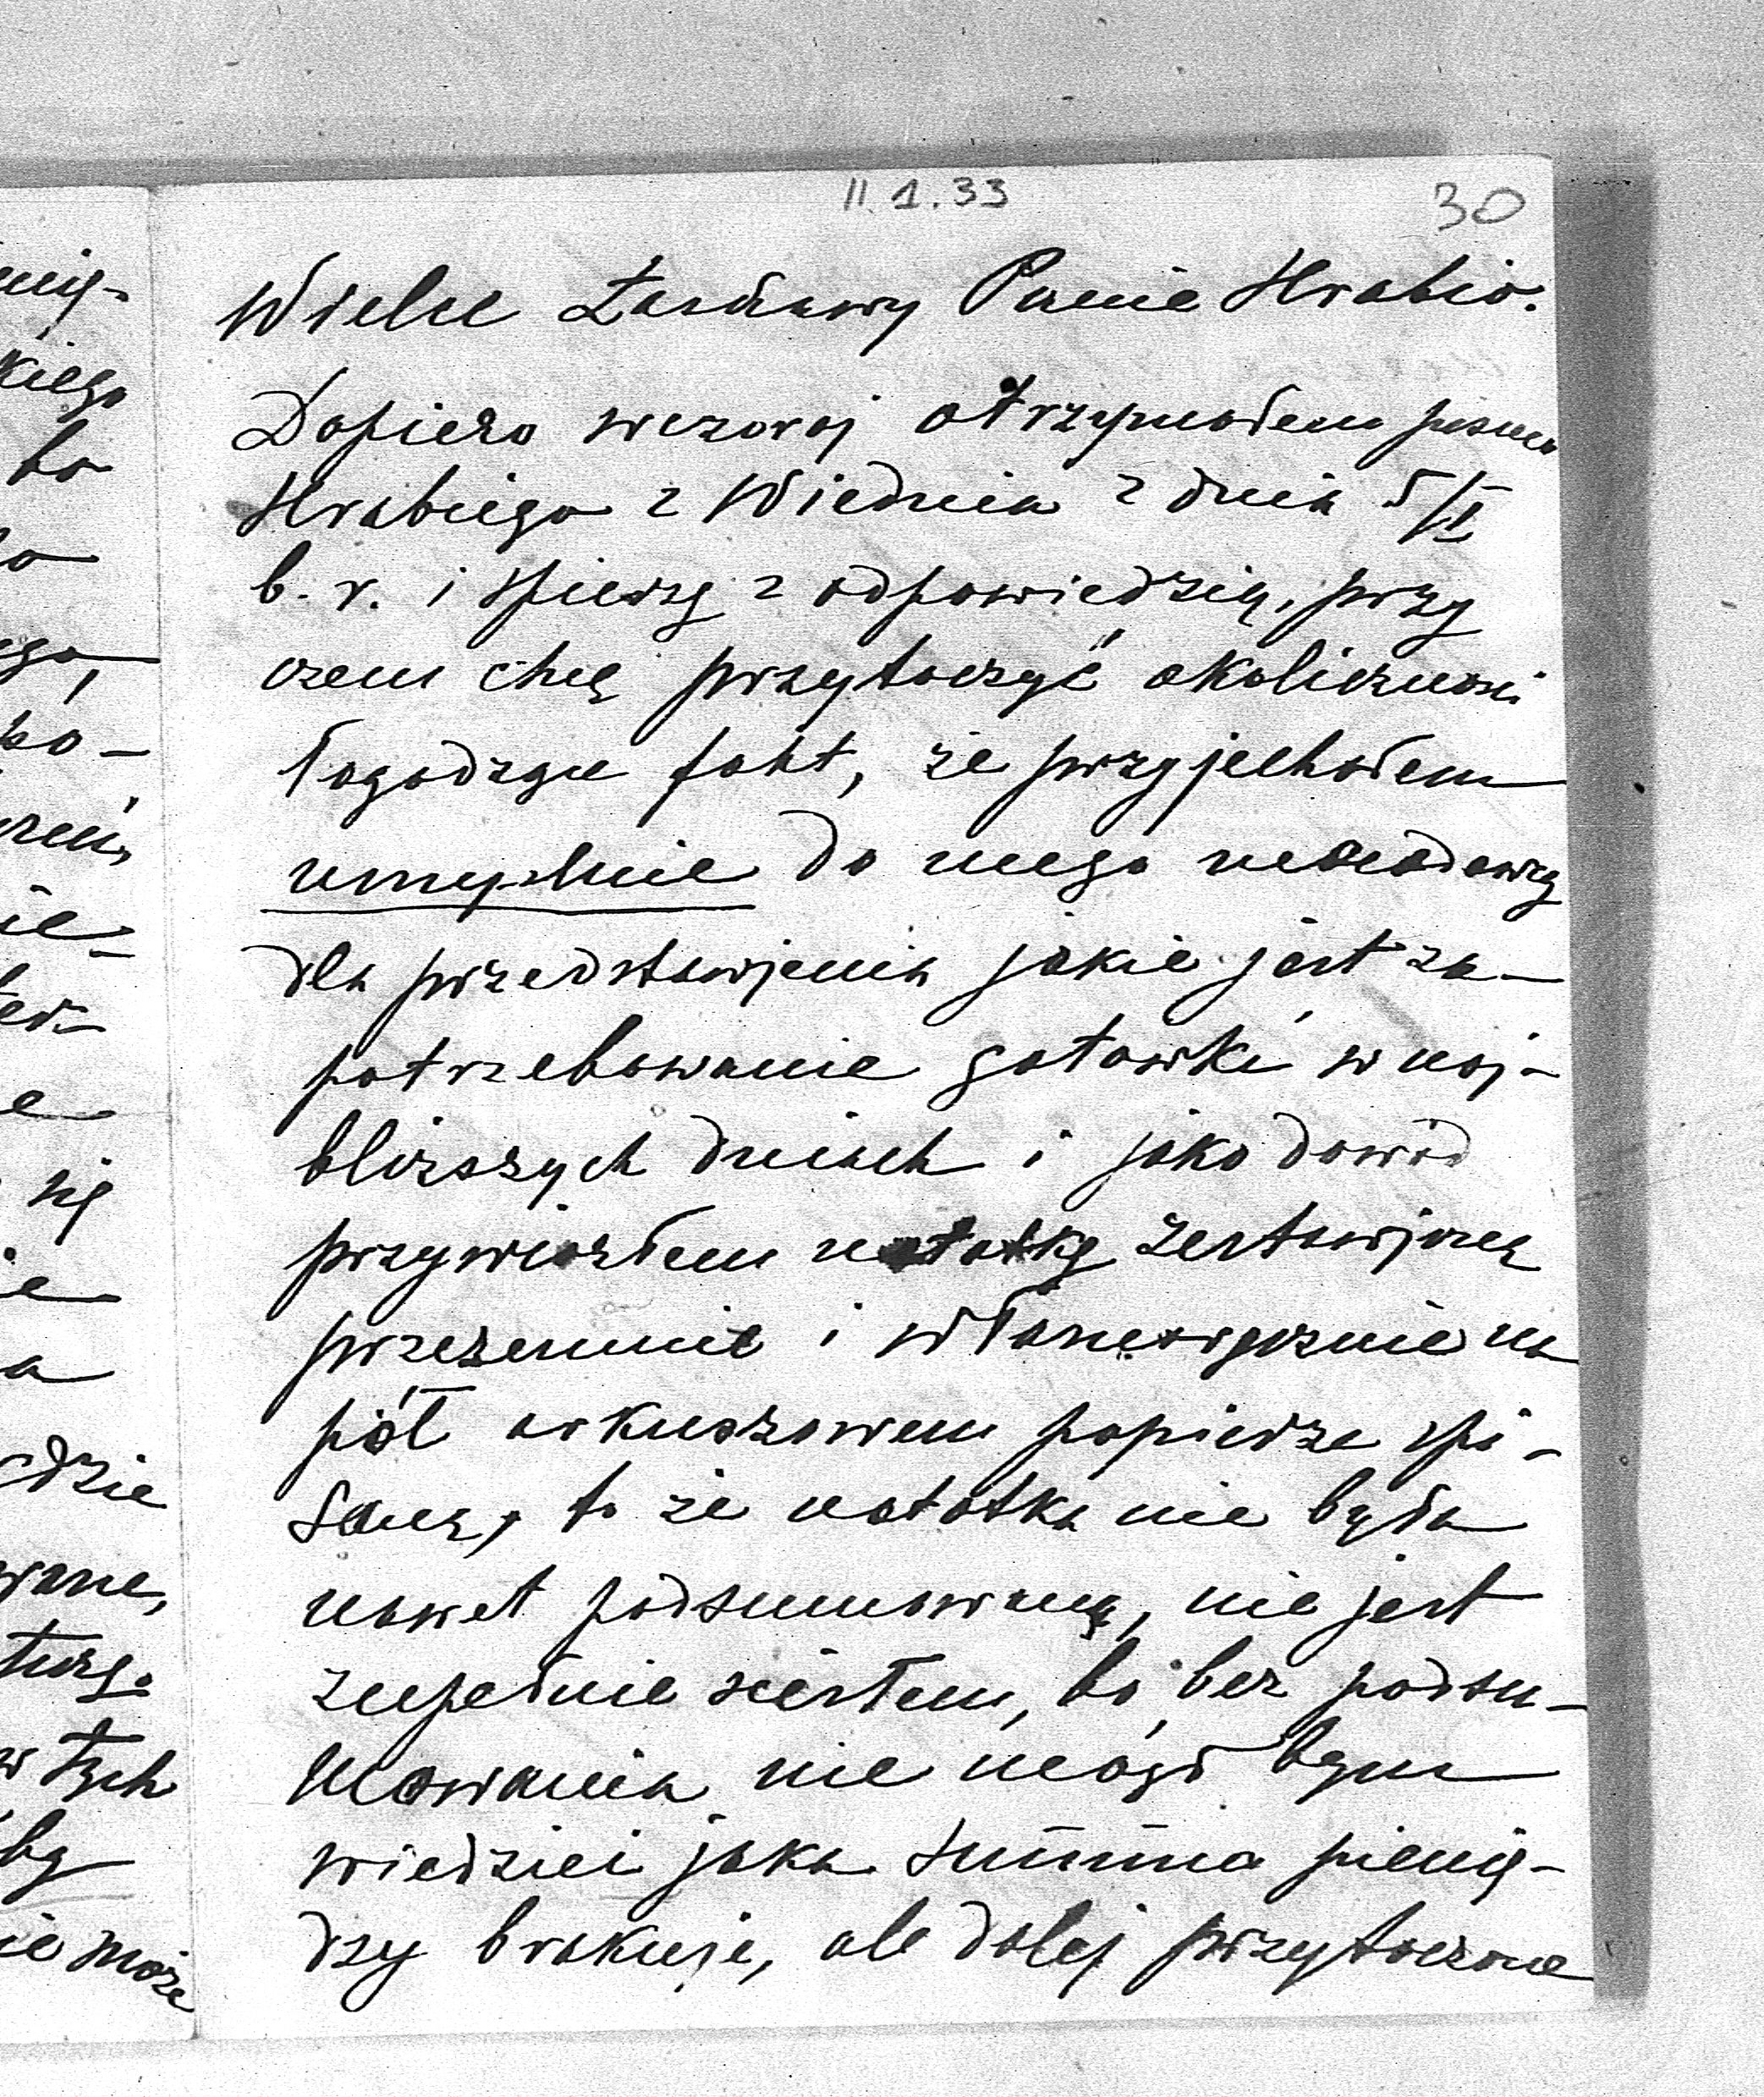 II.1.33
30
Wielce Łaskawy Panie Hrabio.
Dopiero wczoraj otrzymałem pismo
Hrabiego z Wiednia z dnia 5/II
b. r. i spieszę z odpowiedzią, przy
czem chcę przytoczyć okoliczność
łagodzącą fakt, że przyjechałem
umyślnie do mego
dla przedstawjenia jakie jest za-
potrzebowanie gotówki w naj-
bliższych dniach i jako dowód
przywiozłem notatkę zestawjoną
przezemnie i własnoręcznie na
pół arkuszowem papierze spi-
saną, to że notatka nie była
nawet podsumowaną, nie jest
zupełnie ścisłem, bo bez podsu-
mowania nie mógł bym
wiedzieć jaka summa pienię-
dzy brakuje, ale dalej przytoczone
mię-
kiego
bo
ko-
ie-
e
się
ie
a
gdzie
w tych
by
ie może